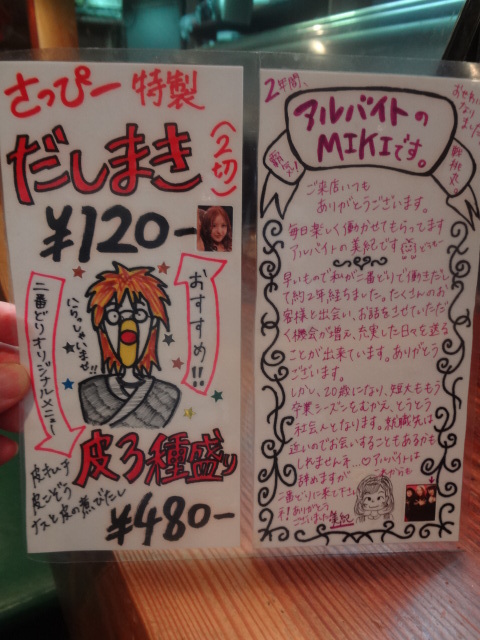 さっぴー 特製
だしまき
(2切)
¥120-
おすすめ!!
いらっしゃいませ!!
二番どりオリジナルメニュー
皮3種盛り
皮ポン
ナスと皮の煮びたし
¥480-
2年間、
アルバイトの
MIKIです。
ご来店いつも
ありがとうございます。
毎日楽しく働かせてもらってます
アルバイトの美紀です
早いもので私が二番どりで働きだし
て約2年経ちました。たくさんのお
客様と出会い、お話をさせていただ
く機会が増え、充実した日々を送る
ことが出来ています。ありがとう
ございます。
しかし、20歳になり、短大ももう
卒業シーズンをむかえ、とうとう
社会人となります。就職先は
近いのでお会いすることもあるかも
しれませんネ…♡アルバイトは
辞めますが これからも
二番どりに来て下さい
ネ!ありがとう
ございました 美紀